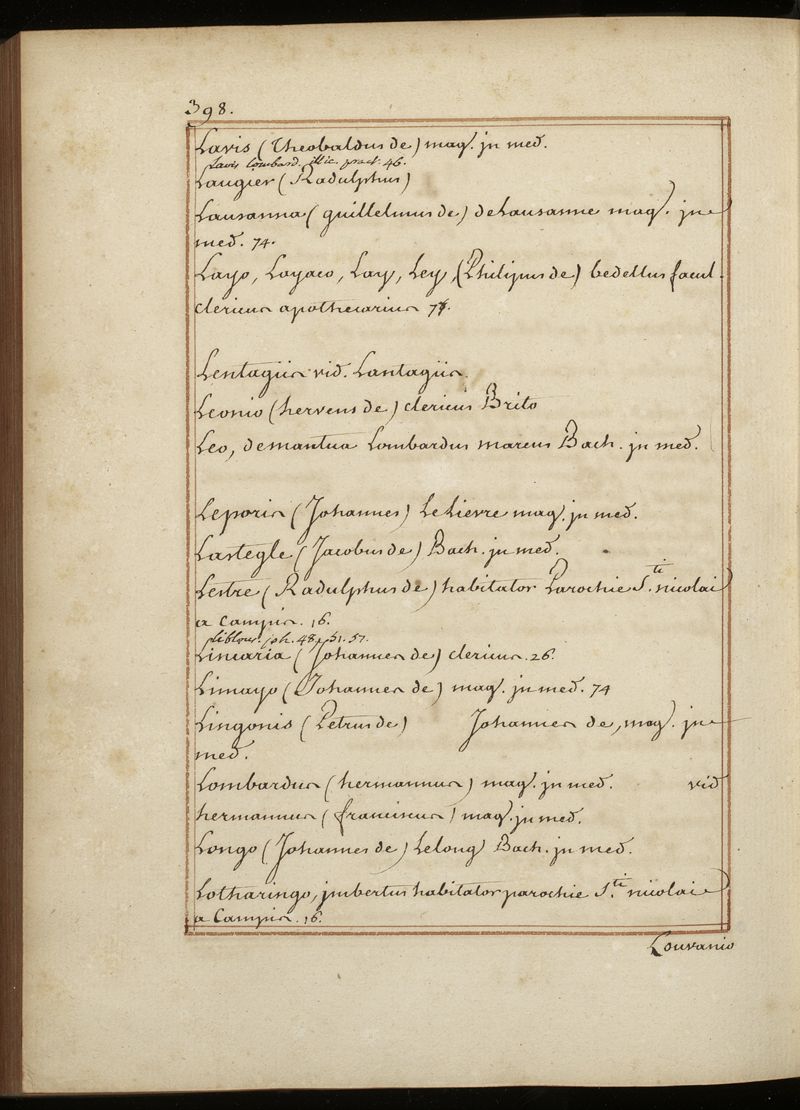 398.
Lavis (Theobaldus de) mag. jn med.
Lavis Lombard. illic. pract. 46.
Laugier (Radulphus)
Lausanna (guillelmus de) de Lausanne mag. jn
med. 74.
Layo, Layaco, Lay, Ley (Philipus de) bedellus facul.
clericus apothecarius 77.
Lentagiis vid. Lantagiis.
Leonio (herveus de) clericus Brito
Leo, de mantua Lombardus marcus Bach. jn med.
Leporis (Johannes) Le Lievre mag. jn med.
Lastegle (Jacobus de) Bach. jn med.
Lestre (Radulphus de) habitator Parochie S.ti nicolai
a Campis. 16.
joh. 48. 51. 57.
Linaria (Johannes de) clericus. 26.
Limayo (Johannes de) mag. jn med. 74
Lingonis (Petrus de) Johannes de, mag. jn
med.
Lombardus (hermannus) mag. jn med. vid
hermannus (franciscus) mag. jn med.
Longo (Johannes de) Lelong Bach. jn med.
Lotharingo, jmbertus habitator parochie S.ti nicolai
a Campis. 16.
Louvanio